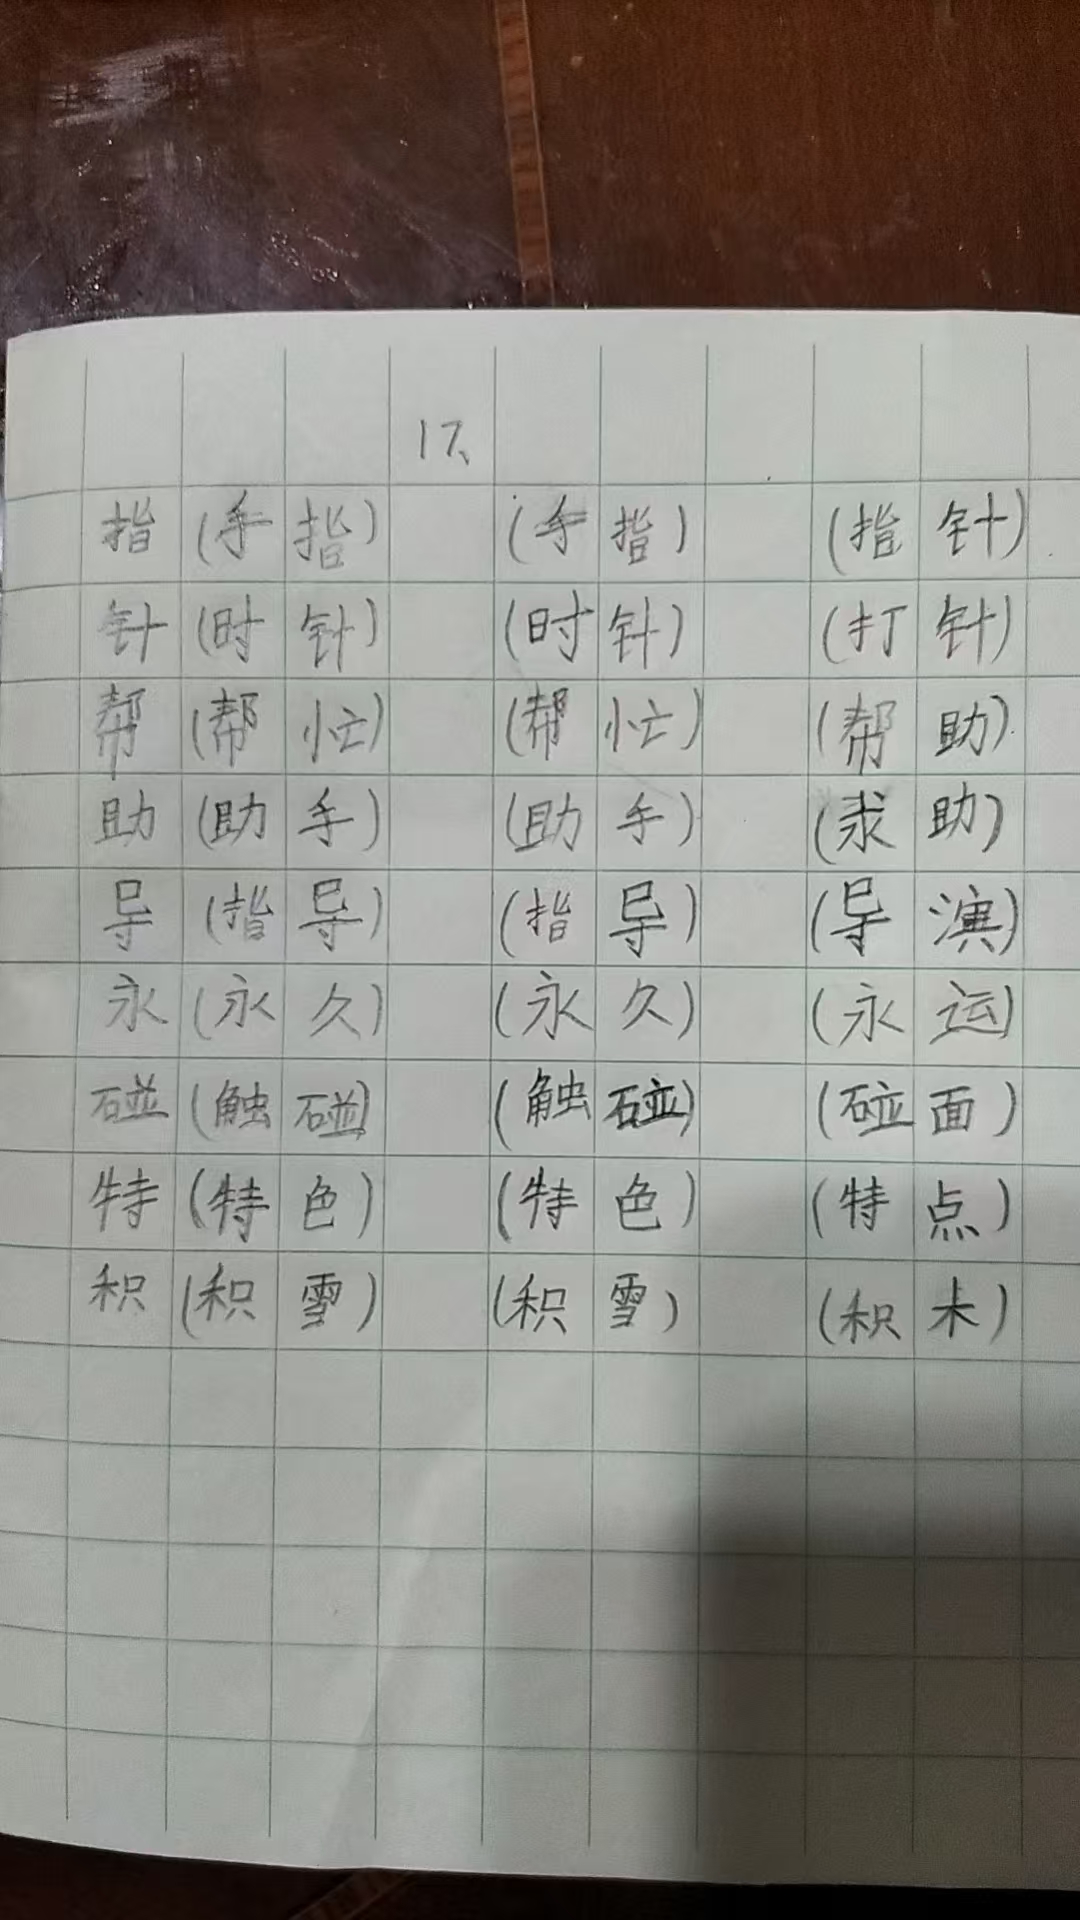 17、
指 (手指) (手指) (指针)
针 (时针) (时针) (打针)
帮 (帮忙) (帮忙) (帮助)
助 (助手) (助手) (求助)
导 (指导) (指导) (导演)
永 (永久) (永久) (永远)
碰 (触碰) (触碰) (碰面)
特 (特色) (特色) (特点)
积 (积雪) (积雪) (积木)